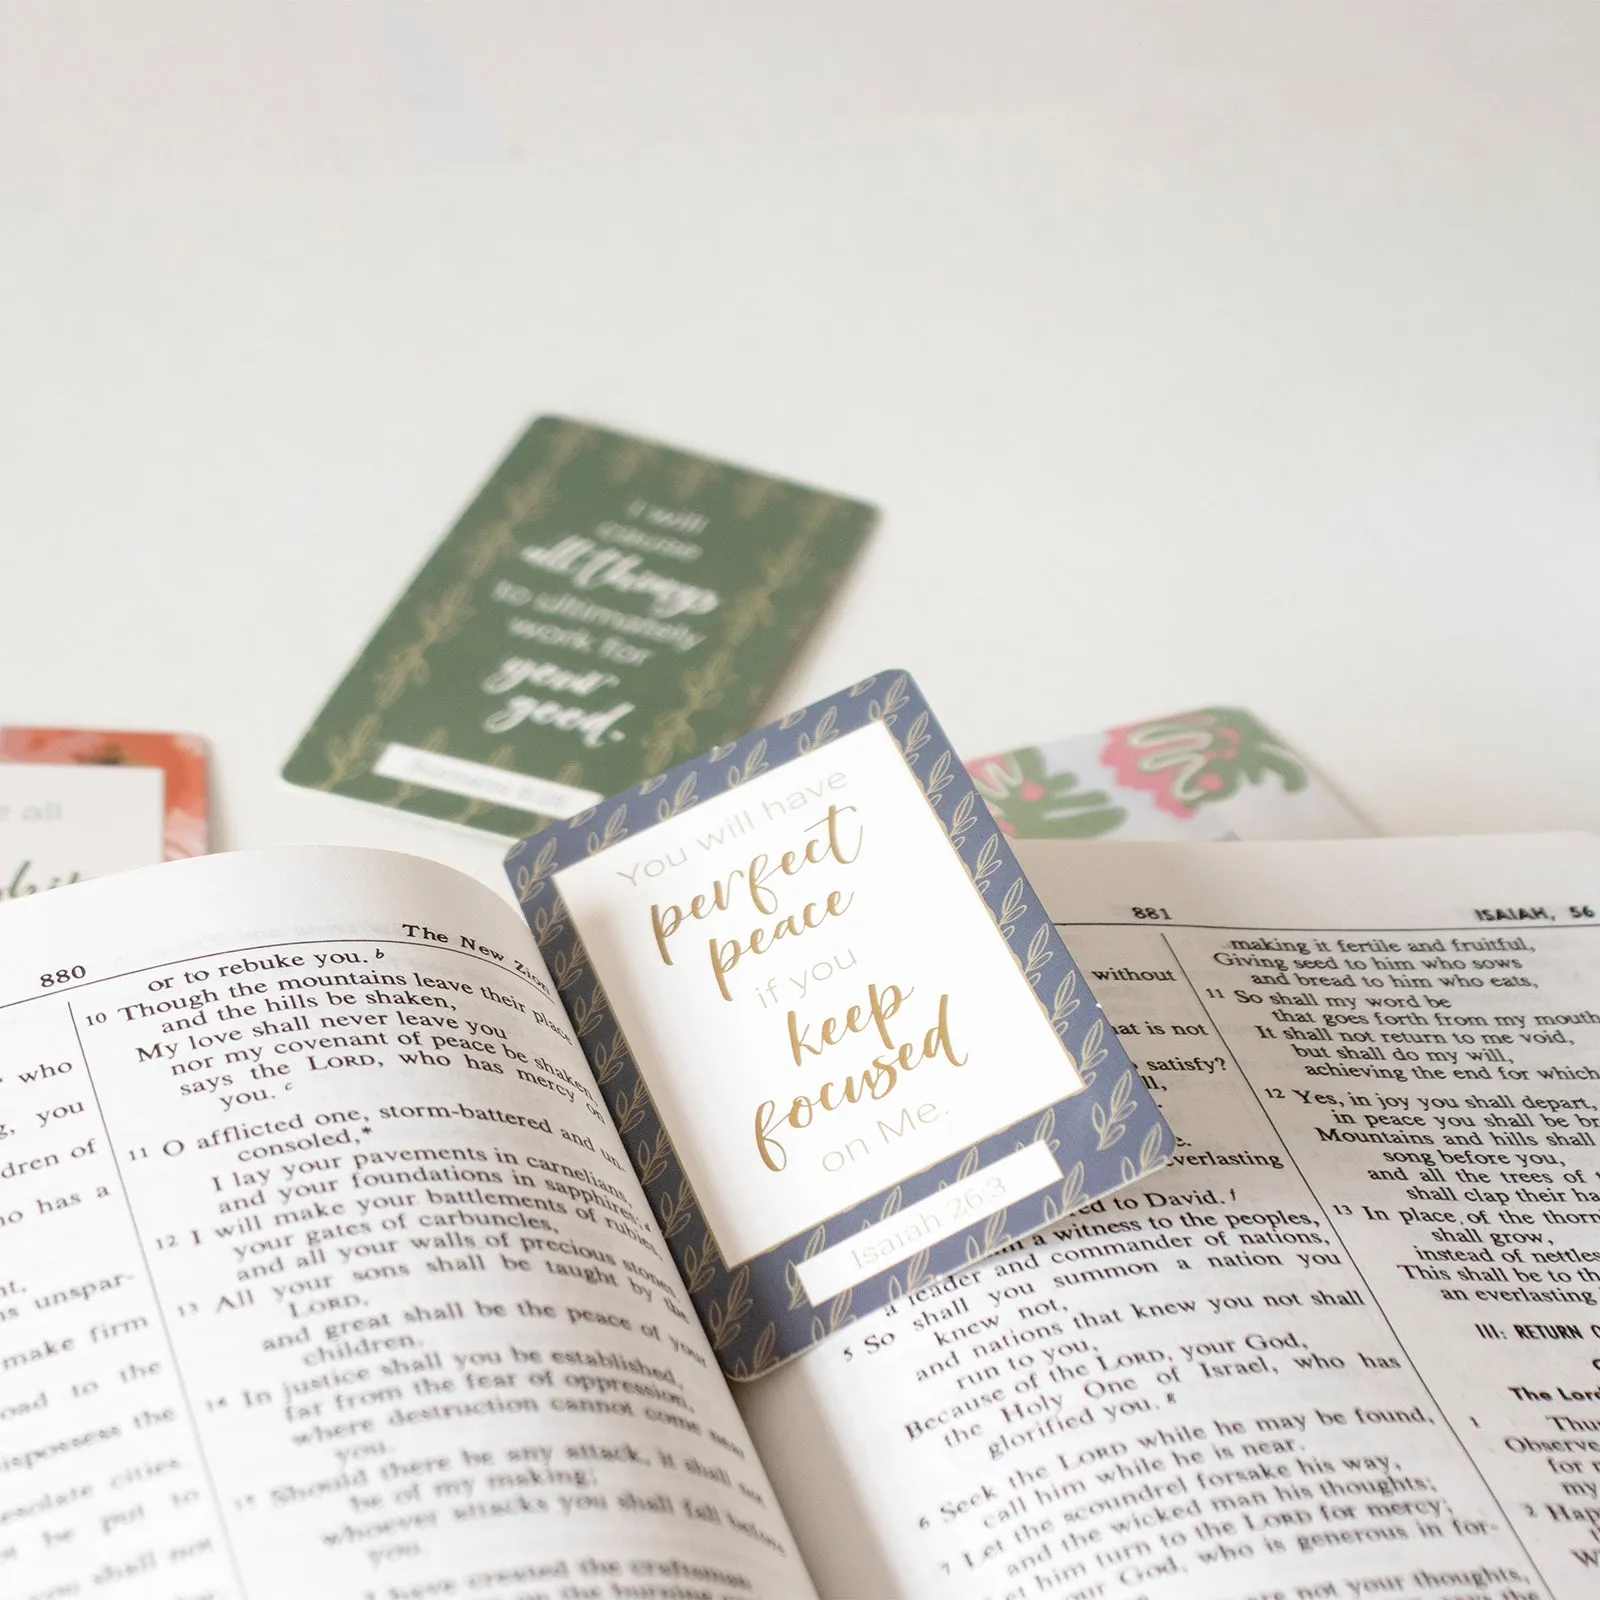 I will
cause
all things
to ultimately
work for
your
good.
Romans 8:28
e all
You will have
perfect
peace
if you
keep
focused
on Me.
Isaiah 26:3
880
The New Zion
who
you
dren of
ho has a
unspar-
make firm
oad to the
ispossess the
esolate cities.
be put to
shall not
or to rebuke you. b
10 Though the mountains leave their place
and the hills be shaken,
My love shall never leave you
nor my covenant of peace be shaken,
says the LORD, who has mercy on
you. c
11 O afflicted one, storm-battered and un-
consoled,*
I lay your pavements in carnelians,
and your foundations in sapphires; d
12 I will make your battlements of rubies,
your gates of carbuncles,
and all your walls of precious stones.
13 All your sons shall be taught by the
LORD,
and great shall be the peace of your
children.
14 In justice shall you be established,
far from the fear of oppression,
where destruction cannot come near
you.
15 Should there be any attack, it shall not
be of my making;
whoever attacks you shall fall before
you.
have created the craftsman
the burning
881
ISAIAH, 56
without
at is not
satisfy?
everlasting
ed to David. f
a witness to the peoples,
a leader and commander of nations,
5 So shall you summon a nation you
knew not,
and nations that knew you not shall
run to you,
Because of the LORD, your God,
the Holy One of Israel, who has
glorified you. g
6 Seek the LORD while he may be found,
call him while he is near.
7 Let the scoundrel forsake his way,
and the wicked man his thoughts;
Let him turn to the LORD for mercy;
our God, who is generous in for-
are not your thoughts,
making it fertile and fruitful,
Giving seed to him who sows
and bread to him who eats,
11 So shall my word be
that goes forth from my mouth
It shall not return to me void,
but shall do my will,
achieving the end for which
12 Yes, in joy you shall depart,
in peace you shall be br
Mountains and hills shall
song before you,
and all the trees of t
shall clap their ha
13 In place of the thorn
shall grow,
instead of nettles
This shall be to th
an everlasting
III: RETURN O
The Lord
1 Thu
Observe
for m
my
2 Hap
W